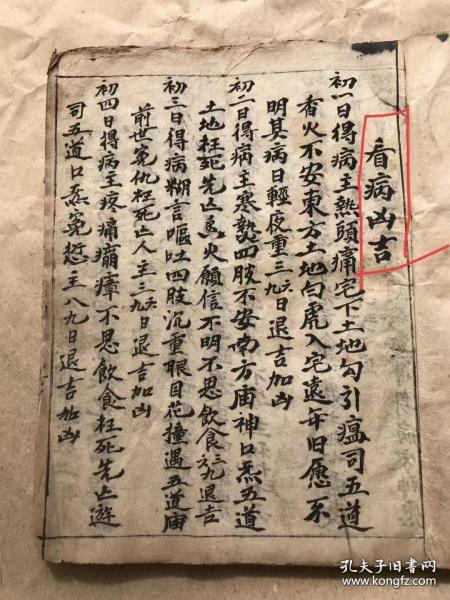 看病凶吉
初一日得病主熱頭痛宅下土地勾引瘟司五道
香火不安東方土地白虎入宅遠年旧愿不
明其病日輕夜重三六九日退吉加凶
初二日得病主寒熱四肢不安南方庙神口炁五道
土地枉死先亡臽火願信不明不思飲食三六九退吉
初三日得病糊言嘔吐四肢沉重眼目花撞遇五道庙
前世冤仇枉死亡人主三六九日退吉加凶
初四日得病主疼痛癀瘴不思飲食枉死先亡遊
司五道口炁冤愆主八九日退吉加凶
孔夫子旧书网
www.kongfz.com